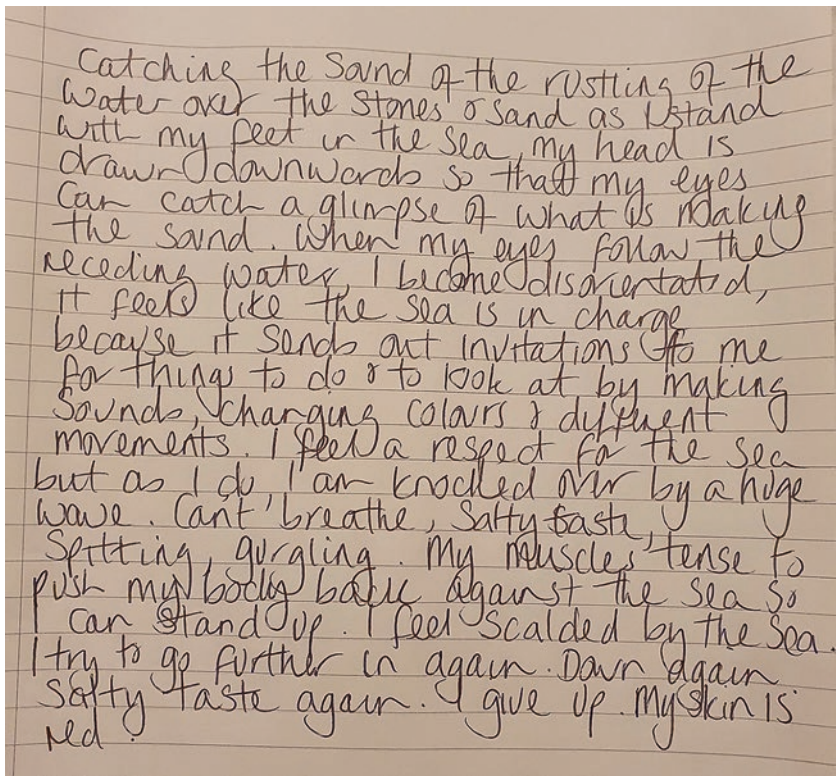 Catching the Sound of the rustling of the
Water over the Stones & Sand as I stand
with my feet in the sea, my head is
drawn downwards so that my eyes
can catch a glimpse of what is making
the sound. When my eyes follow the
receding water, I become disorientated,
it feels like the sea is in charge
because it sends out invitations to me
for things to do & to look at by making
Sounds, changing colours & different
movements. I feel a respect for the sea
but as I do, I am knocked over by a huge
wave. Cant breathe, Salty taste,
Spitting, gurgling. My muscles tense to
push my body back against the sea so
I can stand up. I feel scalded by the sea.
I try to go further in again. Down again
salty taste again. I give up. My skin is
red.